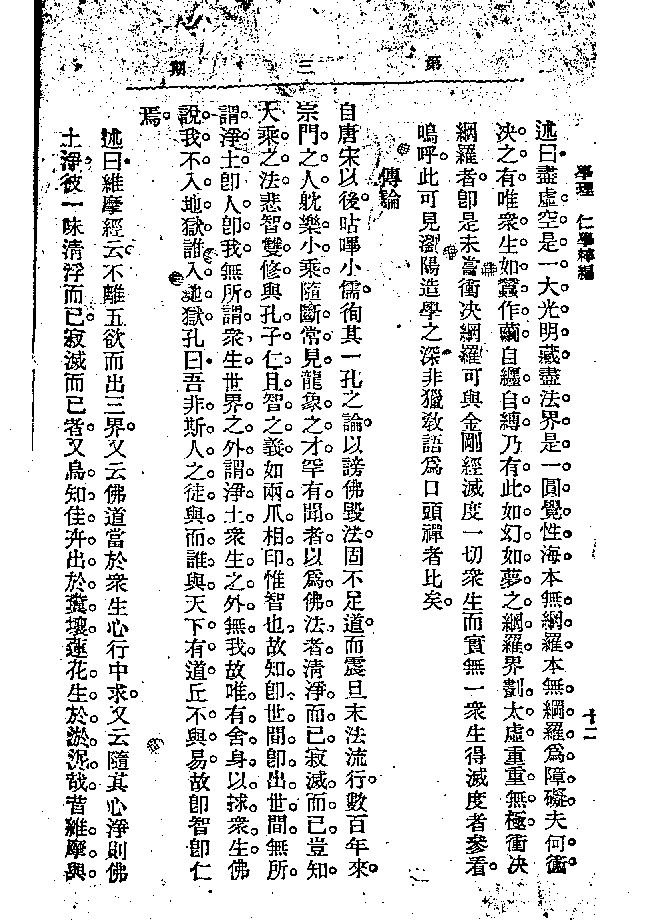 第三期
學理　仁學粹編
十二
述曰盡虛空是一大光明藏盡法界是一圓覺性海本無網羅本無網羅爲障礙夫何衝
決之有唯衆生如蠶作繭自纏自縛乃有此如幻如夢之網羅界劃太虛重重無極衝決
網羅者卽是未嘗衝決網羅可與金剛經滅度一切衆生而實無一衆生得滅度者參看。
嗚呼。此可見瀏陽造學之深非獵敎語爲口頭禪者比矣。
傳論
自唐宋以後呫嗶小儒徇其一孔之論。以謗佛毀法。固不足道。而震旦末法流行。數百年來。
宗門之人躭樂小乘隨斷常見龍象之才罕有聞者以爲佛法者淸淨而已寂滅而已豈知
大乘之法悲智雙修與孔子仁且智之義如兩爪相印惟智也故知卽世間卽出世間無所
謂淨土卽人卽我無所謂衆生世界之外謂淨土衆生之外無我故唯有舍身以救衆生佛
說我不入地獄誰入地獄孔曰吾非斯人之徒與而誰與天下有道丘不與易故卽智卽仁
焉。
述曰維摩經云不離五欲而出三界又云佛道當於衆生心行中求。又云隨其心淨則佛
土淨彼一味淸浮而已。寂滅而已者。又烏知佳卉出於糞壤蓮花生於淤泥哉昔維摩與